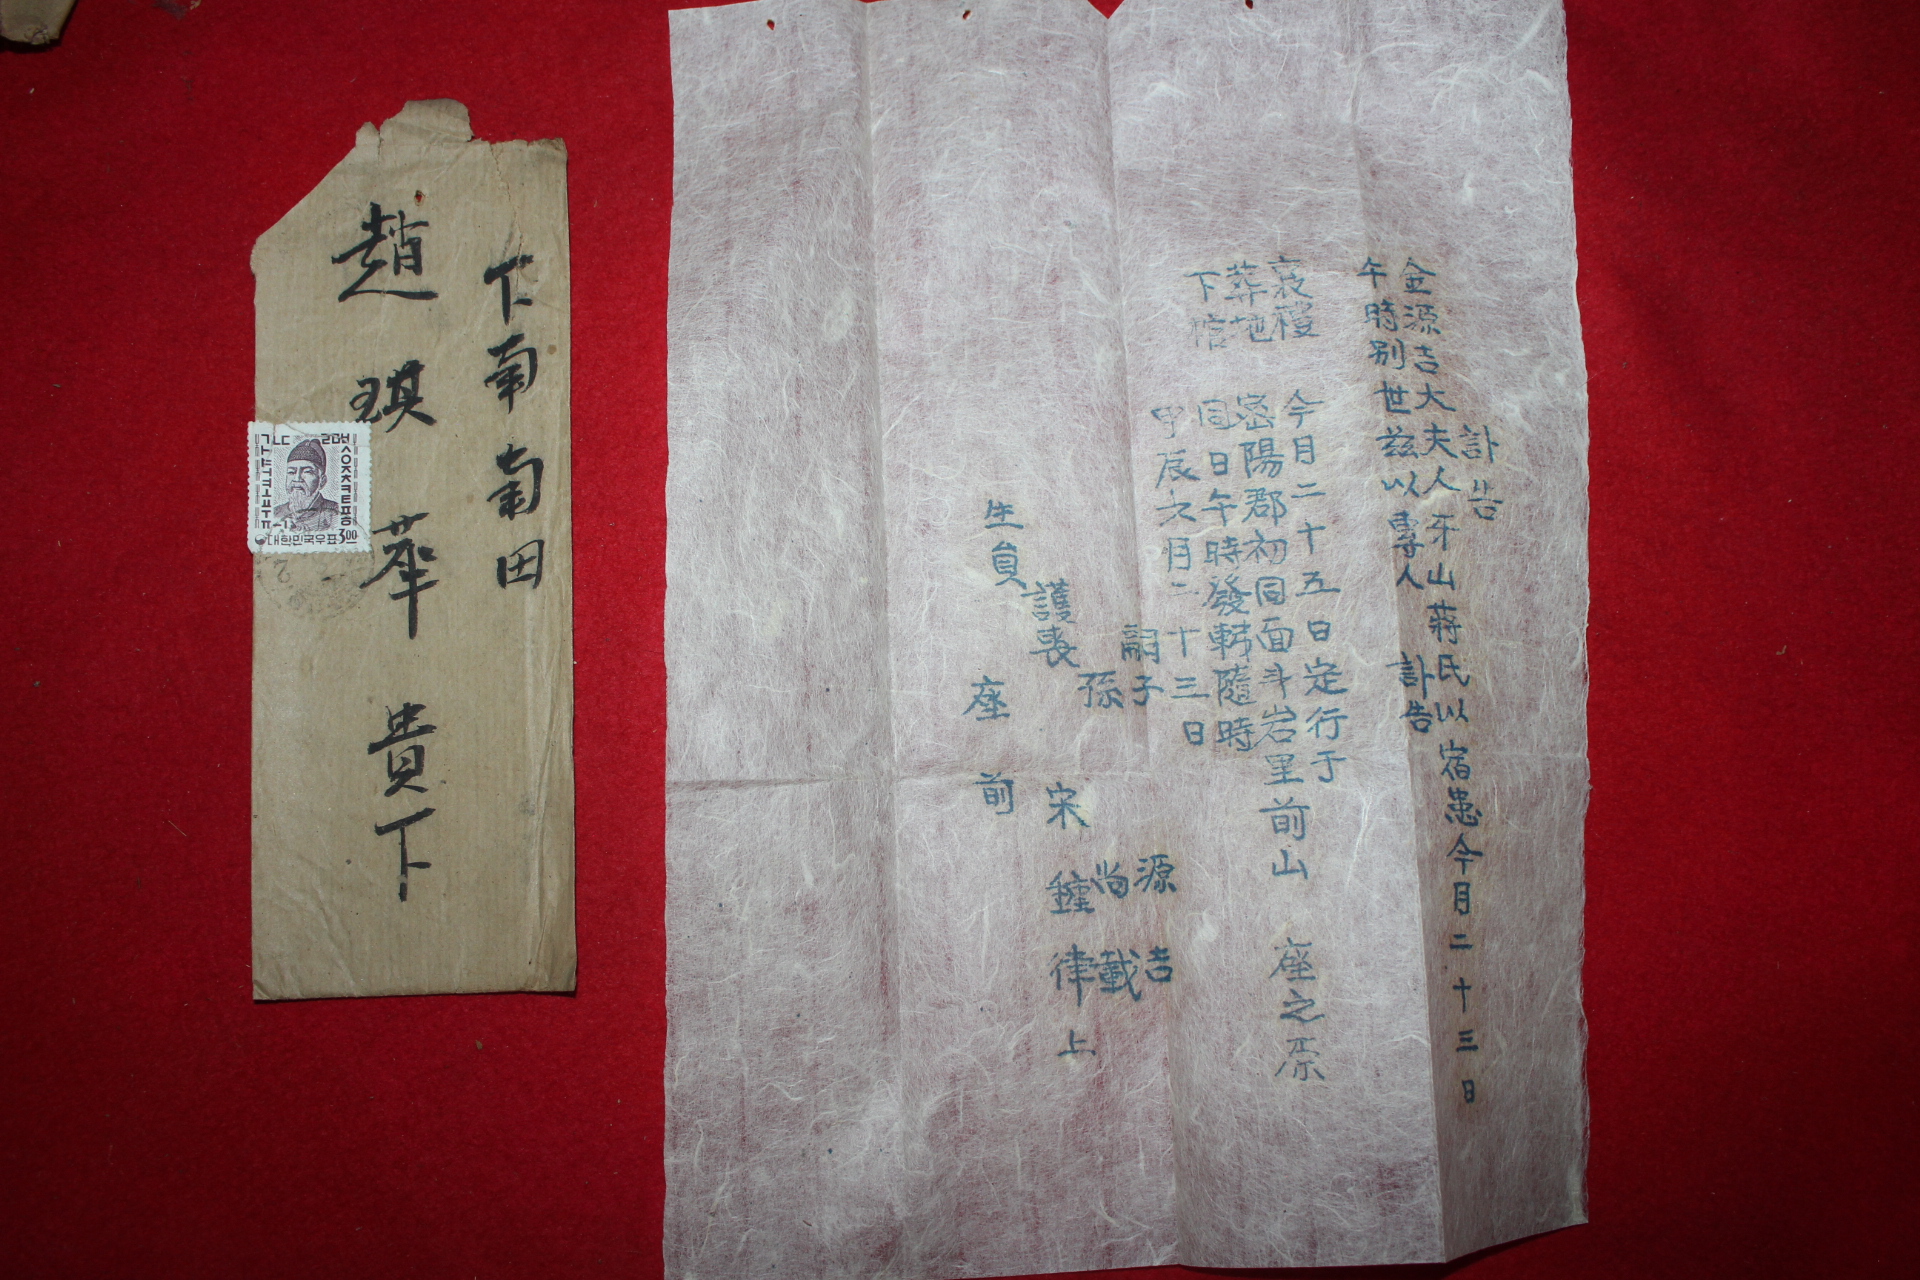 下南南田
趙琪華貴下
대한민국우표 3.00
訃告
金源吉大夫人牙山蔣氏以宿患今月二十三日
午時別世玆以專人 訃告
哀禮 今月二十五日定行于
葬地 密陽郡初同面斗岩里前山 座之原
下棺 同日午時發靷隨時
甲辰 月二十三日
嗣子 源吉
孫 尚載
護喪 宋鐘律 上
生員 座前